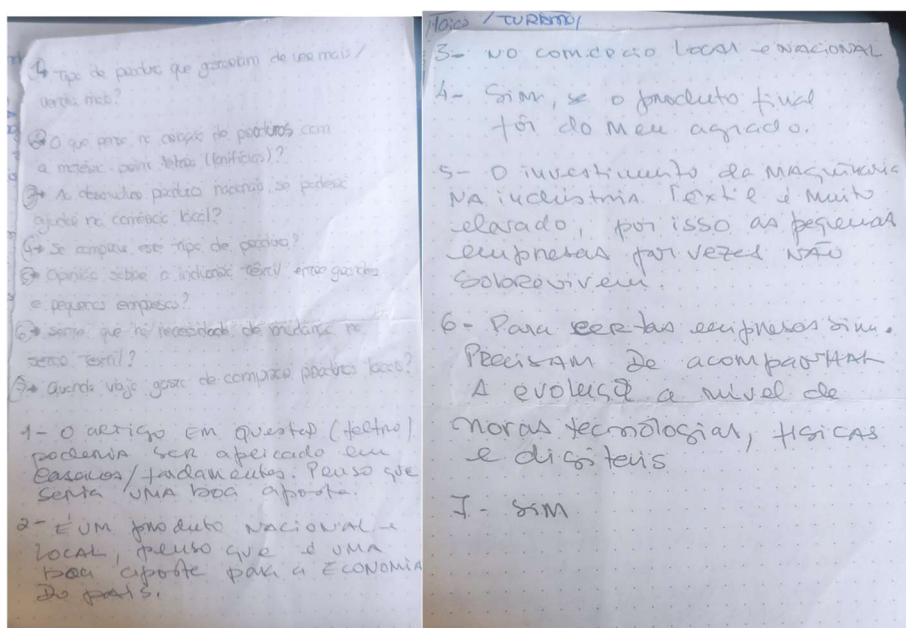 1→ Tipo de produto que gostariam de ver mais/
2→ O que pensa na criação de produtos com
a matéria prima feltro (lanifícios)?
3→ Ao desenvolver produto nacional, se poderá
ajudar no comércio local?
4→ Se comprava este tipo de produto?
5→ Opinião sobre a indústria têxtil entre grandes
e pequenas empresas?
6→ sente que há necessidade de mudança no
setor Têxtil?
7→ Quando viaja gosta de comprar produtos locais?
1- O artigo em questão (feltro)
poderia ser aplicado em
casacos/fardamentos. Penso que
seria uma boa aposta.
2- É um produto nacional e
local, penso que é uma
boa aposta para a economia
do país.
/ TURISMO/
3- no comércio local e nacional
4- Sim, se o produto final
fôr do meu agrado.
5- O investimento da maquinaria
na indústria Textil é muito
elevado, por isso as pequenas
empresas por vezes não
sobrevivem.
6- Para certas empresas sim.
Precisam de acompanhar
a evolução a nível de
novas tecnologias, fisicas
e digitais
7- sim